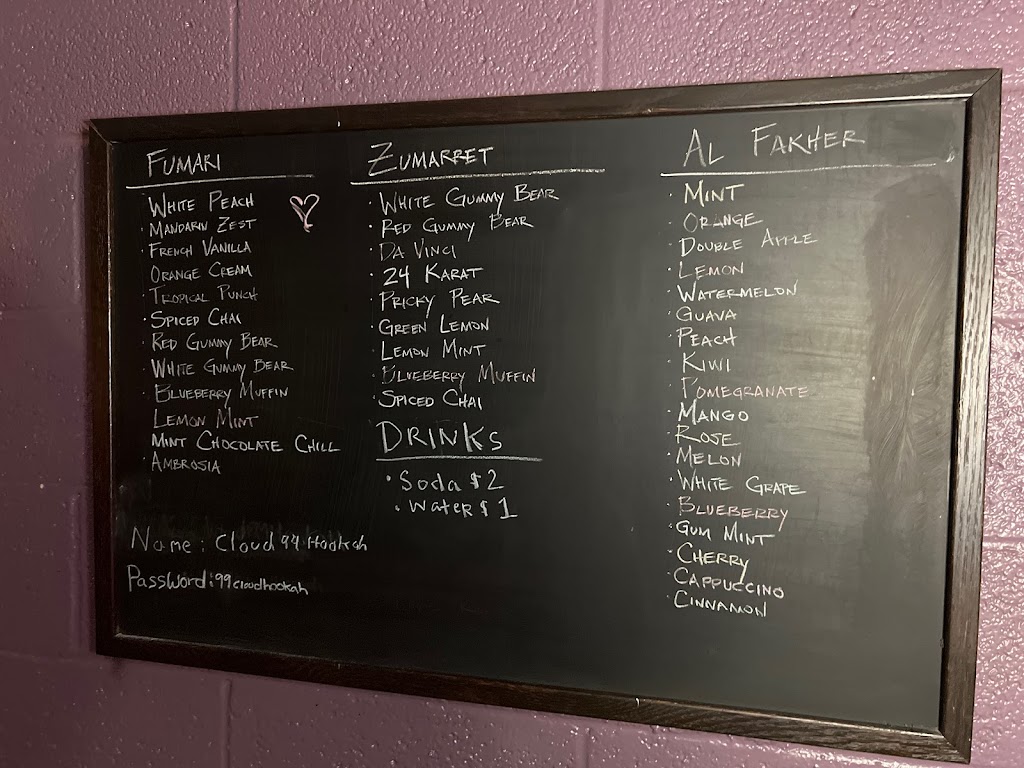 FUMARI
WHITE PEACH
· MANDARIN ZEST
· FRENCH VANILLA
ORANGE CREAM
· TROPICAL PUNCH
· SPICED CHAI
· RED GUMMY BEAR
· WHITE GUMMY BEAR
· BLUEBERRY MUFFIN
LEMON MINT
MINT CHOCOLATE CHILL
· AMBROSIA
Name: Cloud 99 Hookah
Password: 99cloudhookah
ZUMARRET
· WHITE GUMMY BEAR
· RED GUMMY BEAR
· DA VINCI
· 24 KARAT
· PRICKY PEAR
· GREEN LEMON
· LEMON MINT
· BLUEBERRY MUFFIN
· SPICED CHAI
DRINKS
· Soda $2
· Water $1
AL FAKHER
· MINT
· ORANGE
· DOUBLE APPLE
· LEMON
· WATERMELON
· GUAVA
· PEACH
· KIWI
· POMEGRANATE
· MANGO
· ROSE
· MELON
· WHITE GRAPE
· BLUEBERRY
· GUM MINT
· CHERRY
· CAPPUCCINO
· CINNAMON